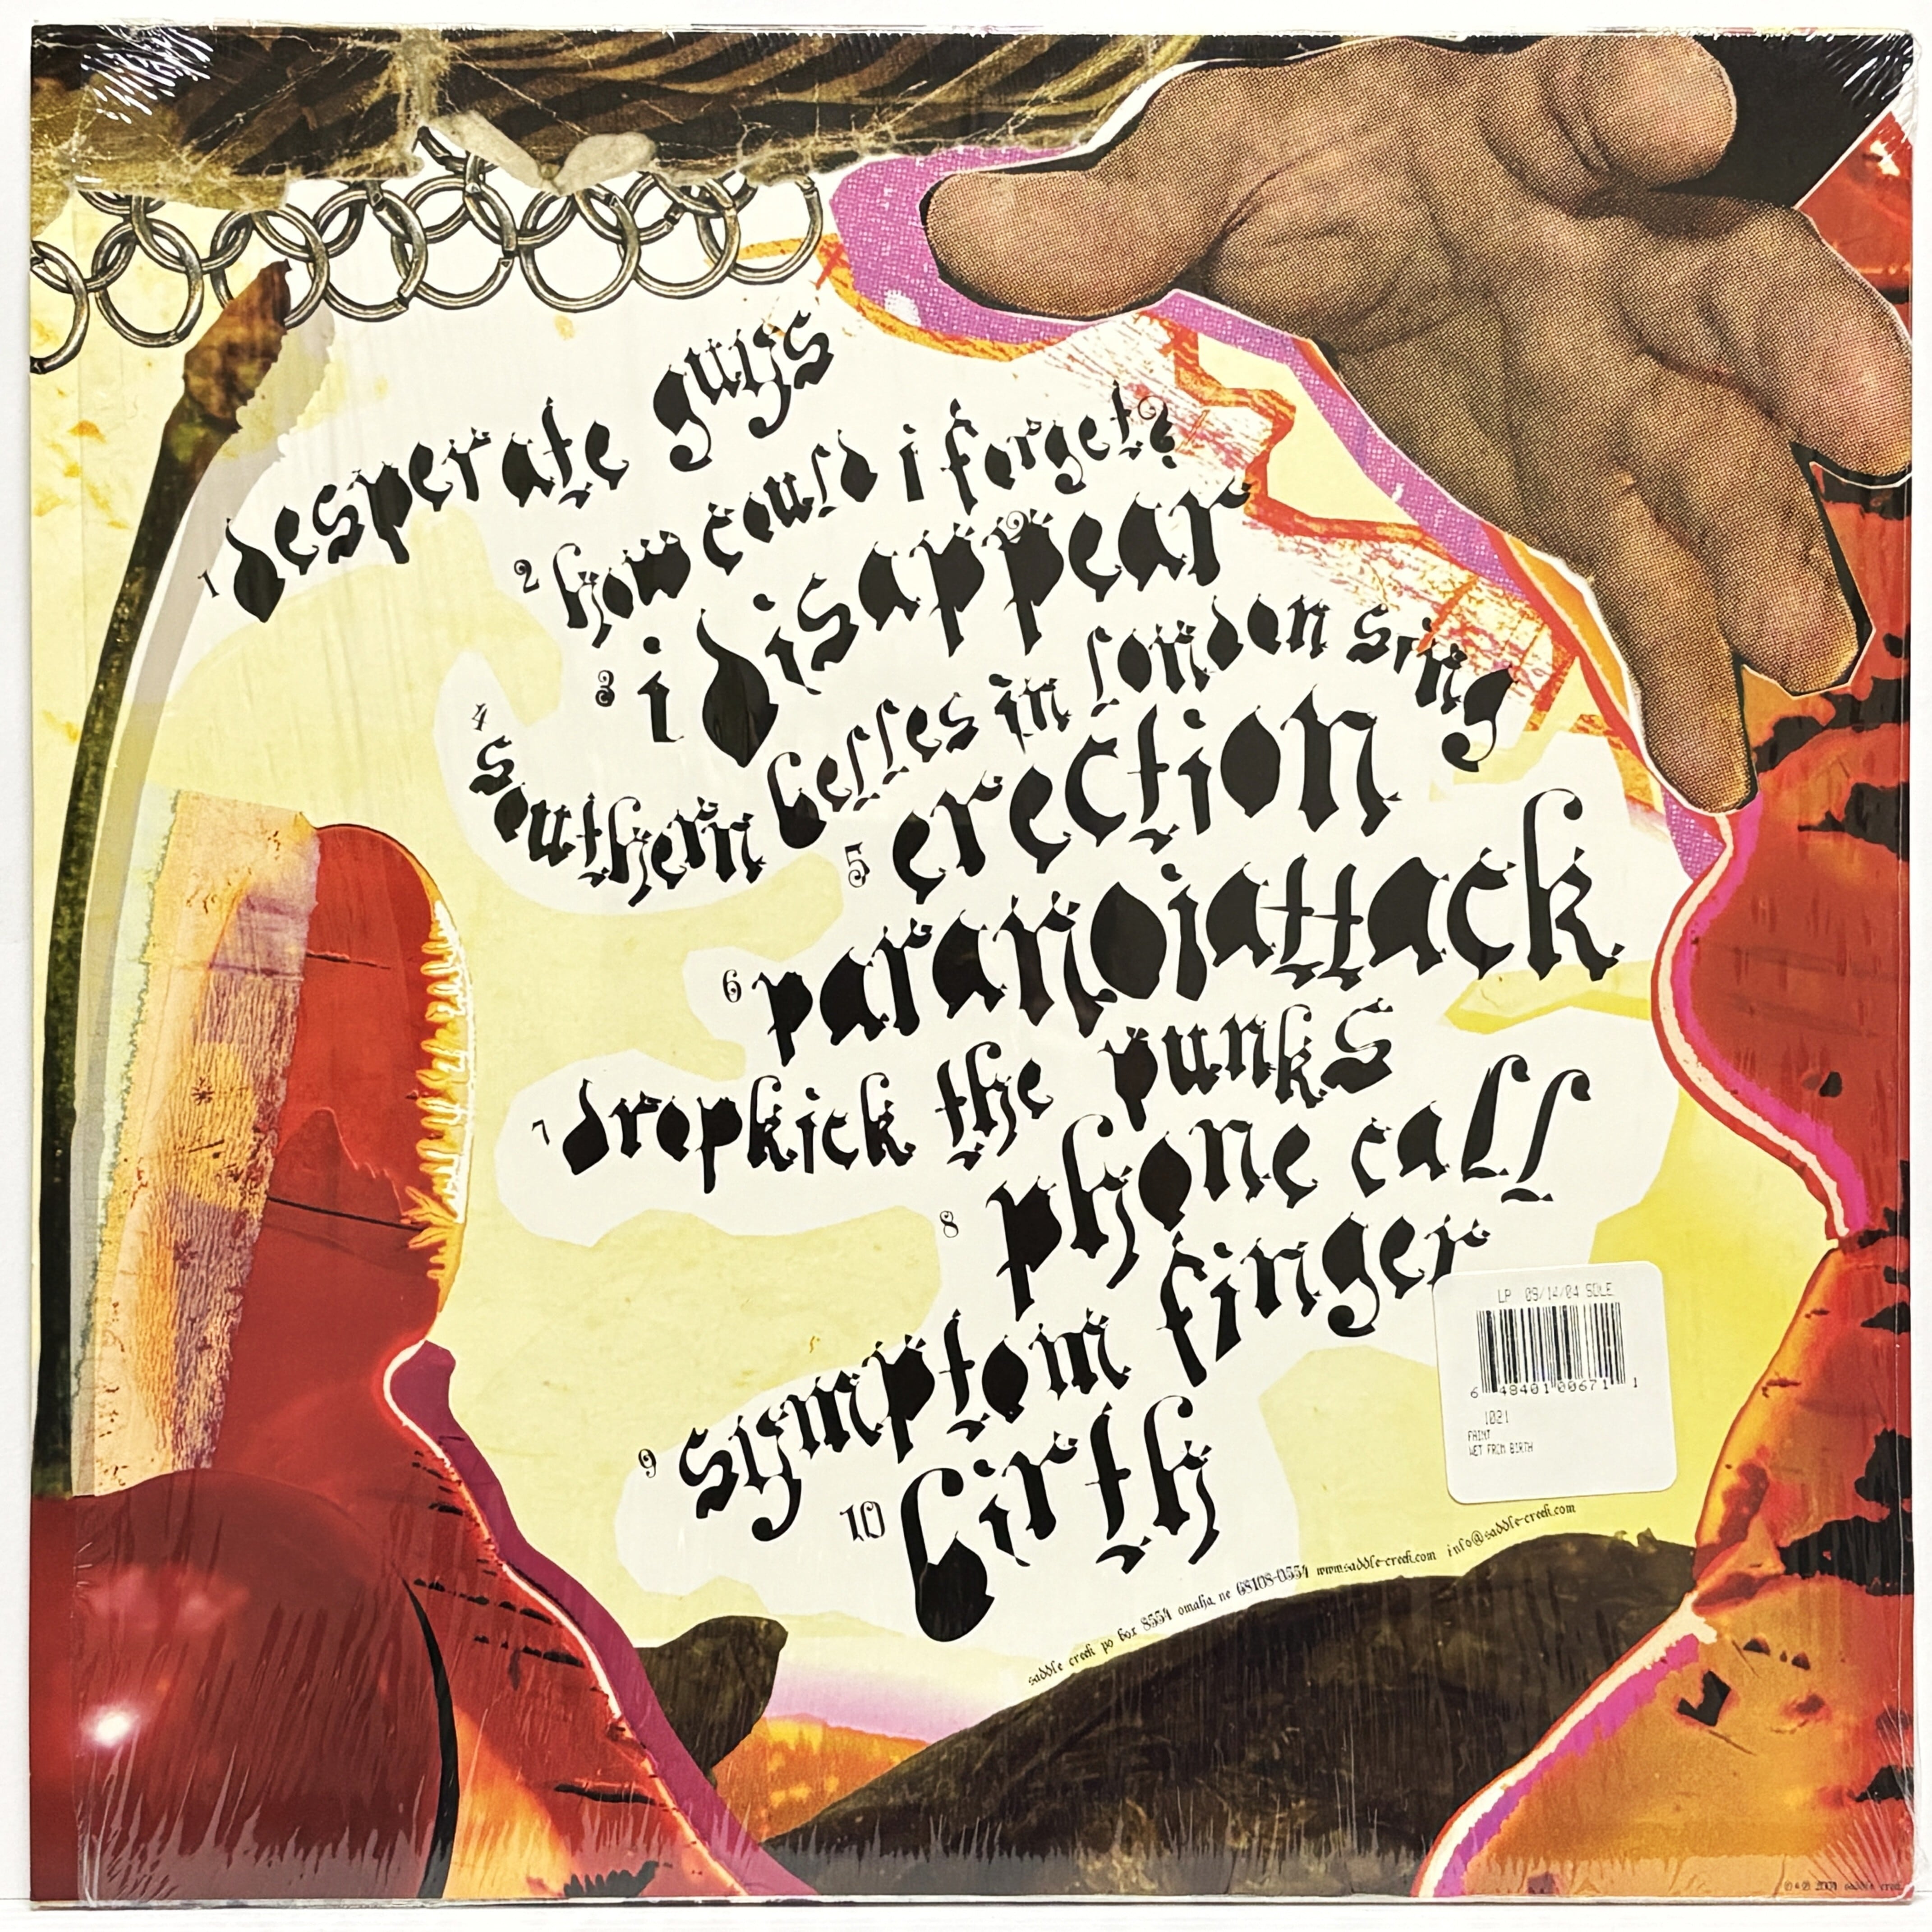 1 desperate guys
2 how could i forget?
3 i disappear
4 southern belles in london sing
5 erection
6 paranoiattack
7 dropkick the punks
8 phone call
9 symptom finger
10 birth
LP 09/14/04 SDLE
6 48401 00671 1
1021
FAINT
WET FROM BIRTH
saddle creek po box 8554 omaha, ne 68108-0554 www.saddle-creek.com info@saddle-creek.com
© & ℗ 2004 saddle creek